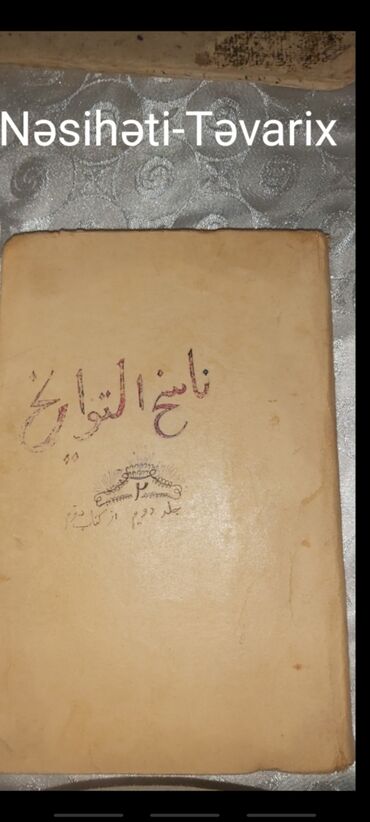 Nəsihəti-Təvarix
ناسخ التواریخ
٢
جلد دوم از کتاب